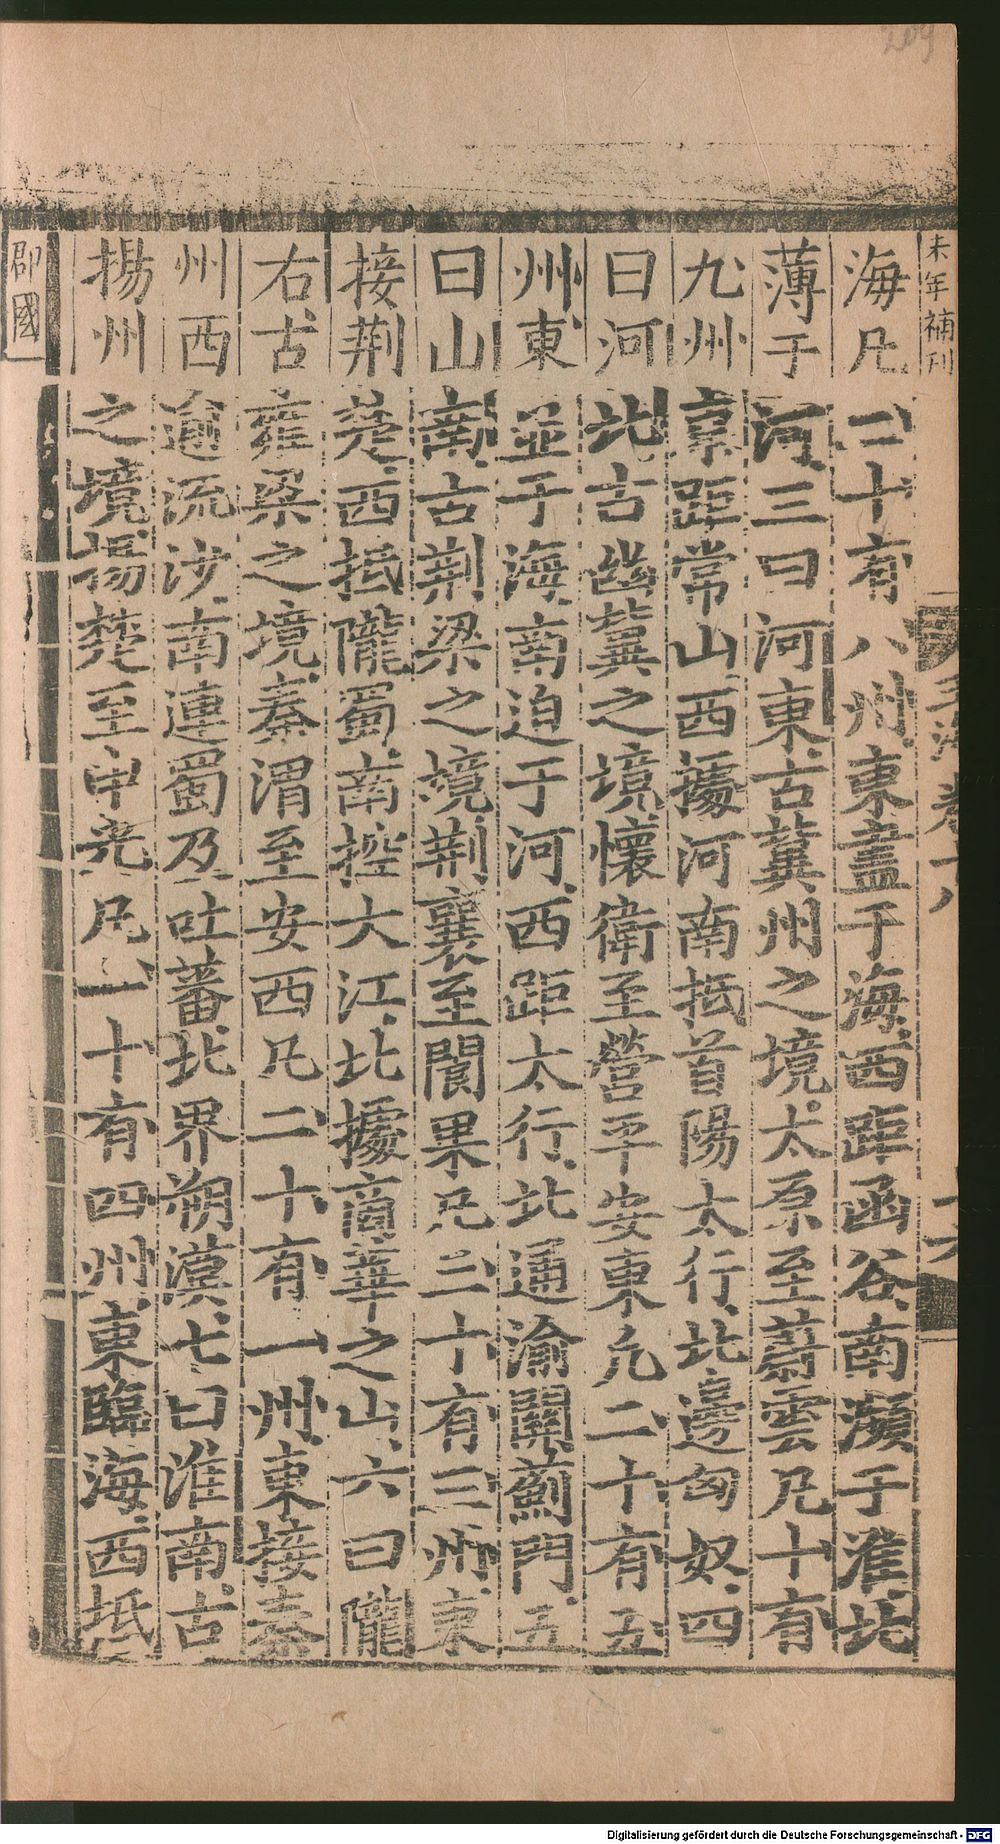 海凡二十有八州東盡于海西距函谷南瀕于淮北
薄于河三曰河東古冀州之境太原至蔚雲凡十有
九州京距常山西據河南抵首陽太行北邊匈奴四
曰河北古幽冀之境懷衛至營平安東凡二十有五
州東並于海南迫于河西距太行北通渝關薊門五
曰山南古荆梁之境荆襄至閬果凡三十有三州東
接荆楚西抵隴蜀南控大江北據商華之山六曰隴
右古雍梁之境秦渭至安西凡二十有一州東接秦
州西逾流沙南連蜀及吐蕃北界朔漠七曰淮南古
揚州之境揚楚至申光凡一十有四州東臨海西抵
郡國
未年補刊
玉海卷十八
209
Digitalisierung gefördert durch die Deutsche Forschungsgemeinschaft - DFG